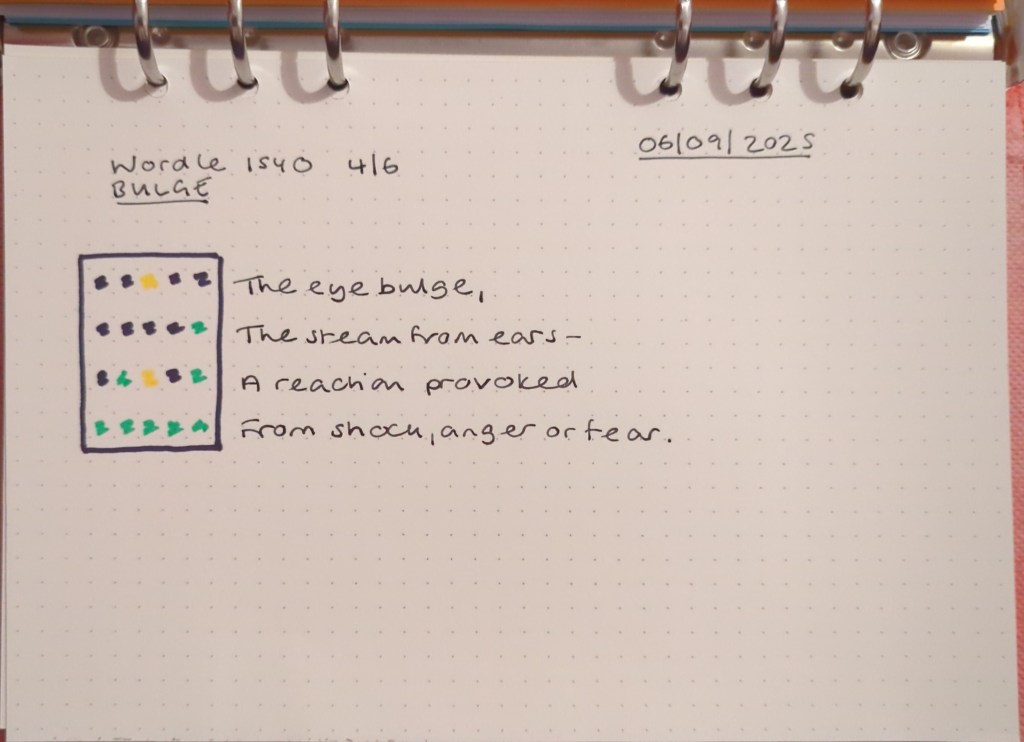 06/09/2025
Wordle 1540 4/6
BULGE
The eye bulge,
The steam from ears -
A reaction provoked
From shock, anger or fear.